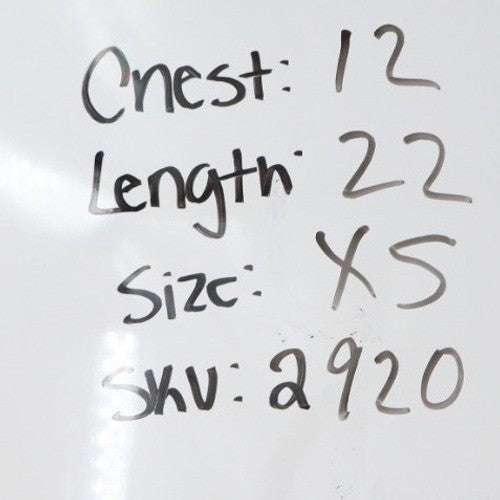 Chest: 12
Length: 22
Size: XS
SKU: 2920